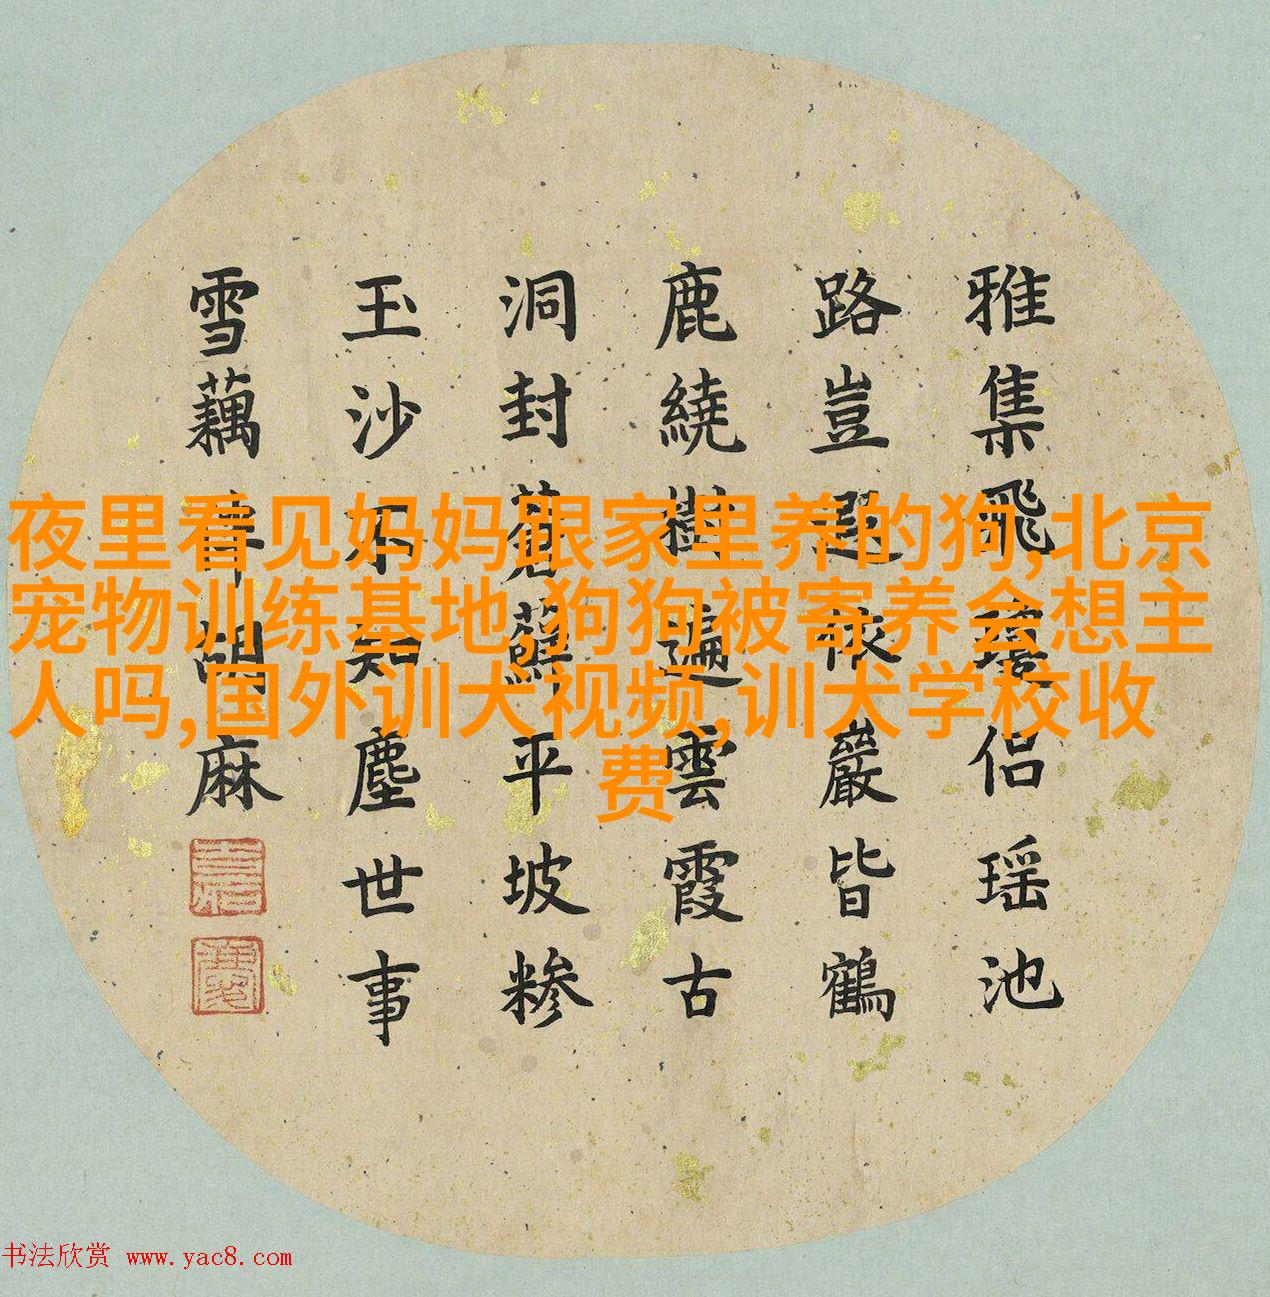 雅集飛瓊侶瑶池
路豈遐依巖皆鶴
鹿繞樹遍雲霞古
洞封蒼蘚平坡糝
玉沙不知塵世事
雪藕胡麻
夜里看见妈妈跟家里养的狗,北京
宠物训练基地,狗狗被寄养会想主
人吗,国外训犬视频,训犬学校收
费
书法欣赏 www.yac8.com